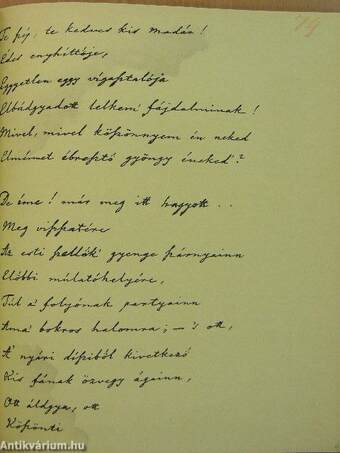 79
Te hiv, te kedves kis madár!
Édes enyhittője,
Egygyetlen eggy vigasztalója
Elbádgyadott lelkem fájdalminak!
Mivel, mivel köszönnyem én neked
Elmémet ébresztő gyöngy éneked?
De éme! már meg itt hagyott..
Meg visszatére
Az esti szellők' gyenge szárnyainn
Előbbi múlatóhelyére,
Túl a' folyónak partyainn
Ama' bokros halomra; – 's ott,
A' nyári dísziből kivetkező
Kis fának özvegy ágainn,
Ott áldgya, ott
Köszönti
Antikvárium.hu
antikvarium.hu